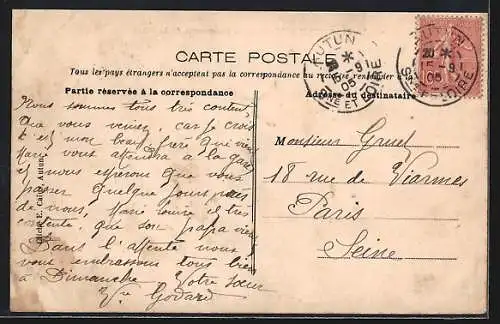 CARTE POSTALE
Tous les pays étrangers n'acceptent pas la correspondance au recto
Partie réservée à la correspondance
Adresse du destinataire
AUTUN
SAÔNE ET LOIRE
AUTUN
20
05
LOIRE
Nous sommes tous très content
que vous veniez, car je crois
c'est mon beau frère qui
vous attendra à la gare
et nous espérons que vous
passer quelque jours près
de vous, Marie Louise et très
contente, que son papa vien
Dans l'attente nous
vous embrassons tous bien
à Dimanche Votre sœur
Vve Godard
Monsieur Gruel
18 rue de Viarmes
Paris
Seine
Cliché E. Autun